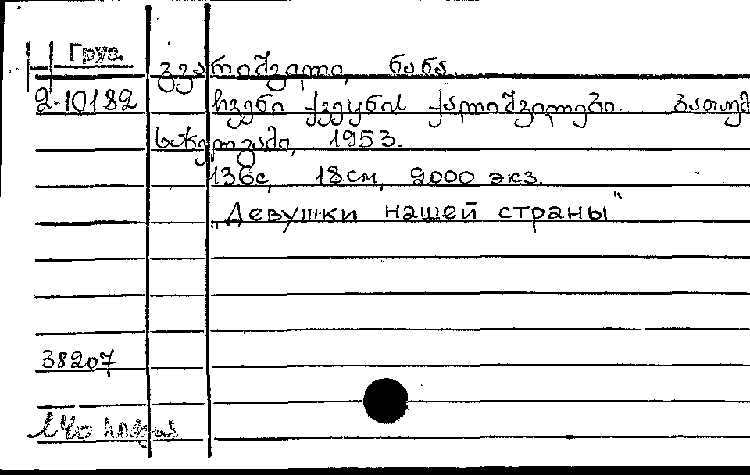 Груз.
გვარიშვილი, ნანა.
2-10182 ჩვენი ქვეყნის ქალიშვილები. ბათუმ
სახელგამი, 1953.
136с, 18см, 2000 экз.
„Девушки нашей страны"
38207